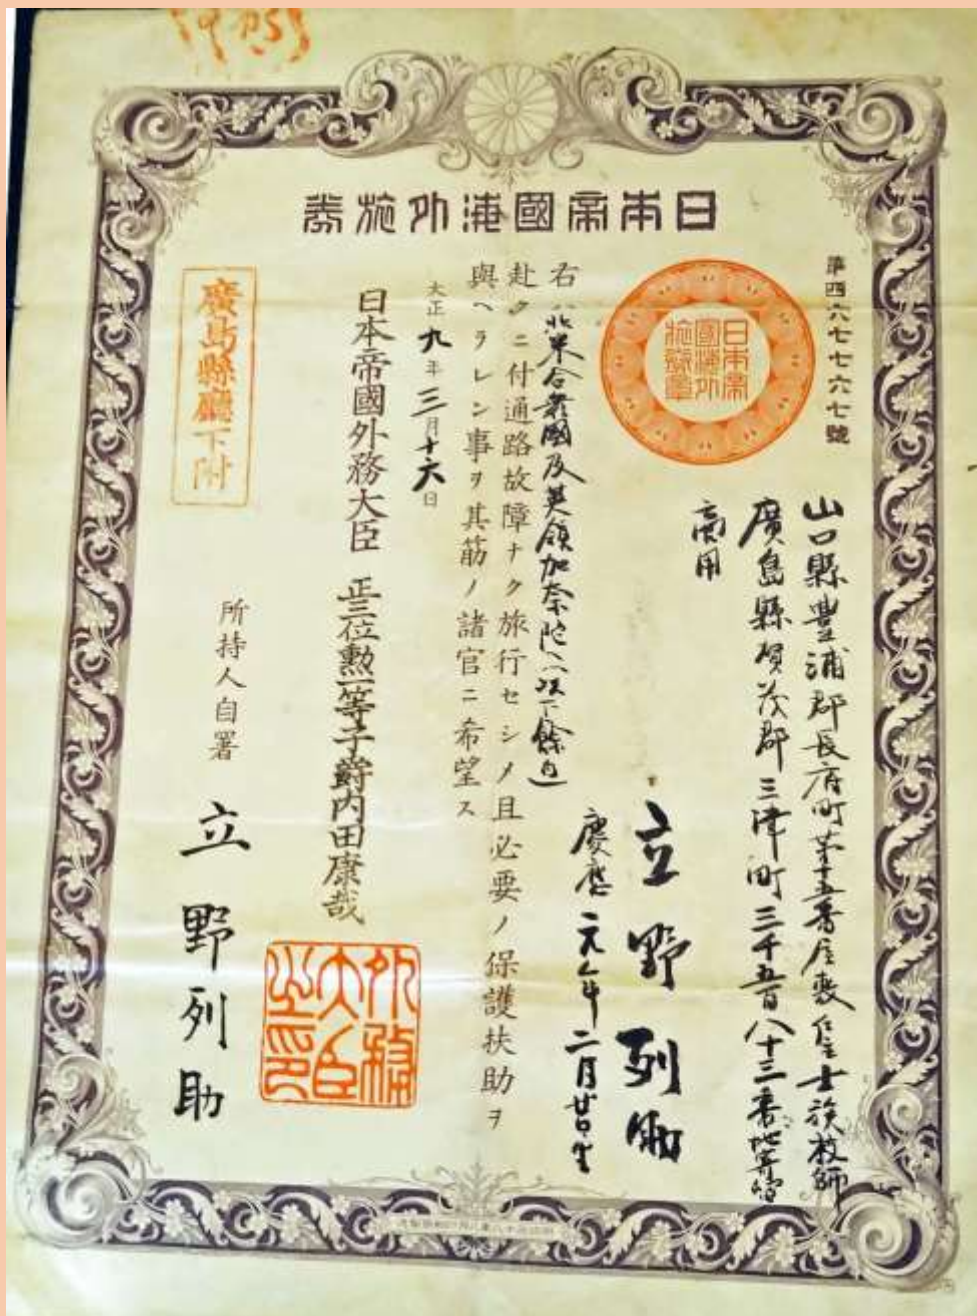 日本帝國海外旅券
第四六七七六七號
日本帝
國海外
旅券章
山口縣豊浦郡長府町第十五番屋敷 士族
廣島縣賀茂郡三津町三千五百八十三番地寄留
商用
立野列助
慶應元年二月廿日生
右ハ北米合衆國及英領加奈陀(以下餘白)
赴クニ付通路故障ナク旅行セシメ且必要ノ保護扶助ヲ
與ヘラレン事ヲ其筋ノ諸官ニ希望ス
大正九年三月十六日
日本帝國外務大臣 正三位勲一等子爵内田康哉
外務
大臣
之印
廣島縣廳下附
所持人自署 立野列助